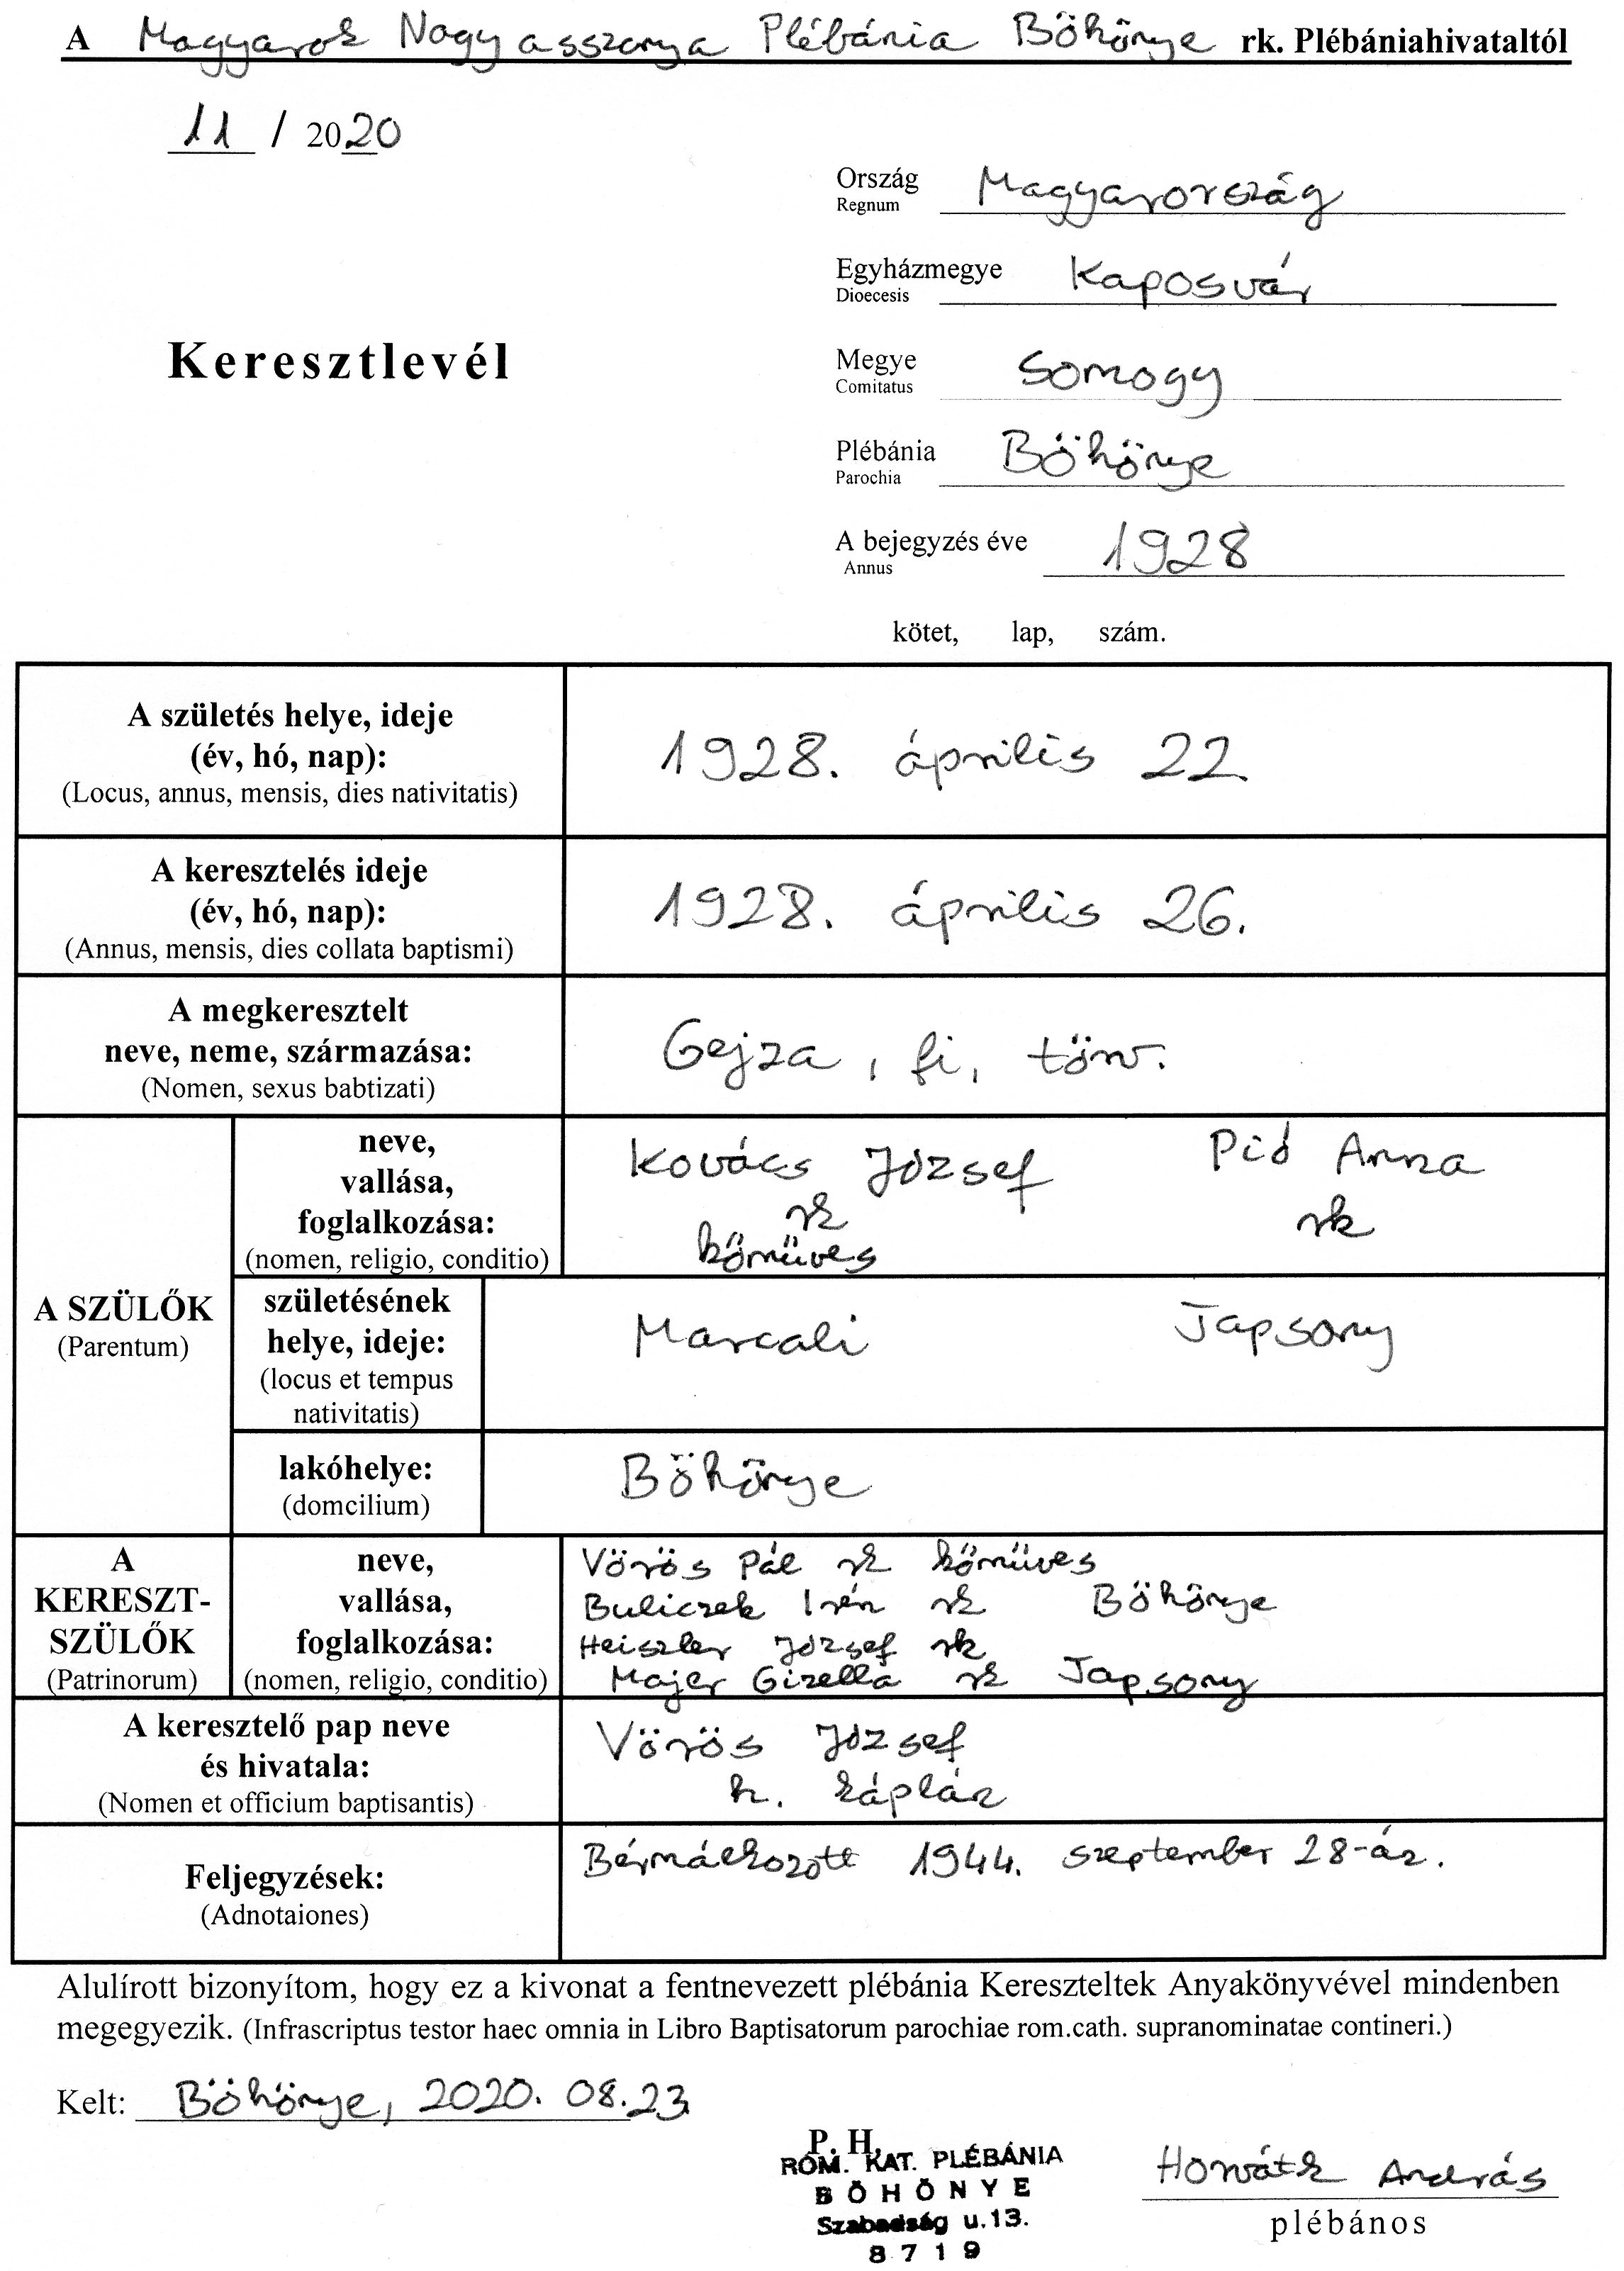 A Magyarok Nagyasszonya Plébánia Böhönye rk. Plébániahivataltól
11 / 2020
Ország Magyarország
Regnum
Egyházmegye Kaposvár
Dioecesis
Keresztlevél
Megye Somogy
Comitatus
Plébánia Böhönye
Parochia
A bejegyzés éve 1928
Annus
kötet, lap, szám.
A születés helye, ideje
(év, hó, nap):
(Locus, annus, mensis, dies nativitatis)
1928. április 22.
A keresztelés ideje
(év, hó, nap):
(Annus, mensis, dies collata baptismi)
1928. április 26.
A megkeresztelt
neve, neme, származása:
(Nomen, sexus babtizati)
Gejza, fi, törv.
A SZÜLŐK
(Parentum)
neve,
vallása,
foglalkozása:
(nomen, religio, conditio)
Kovács József Pió Anna
rk rk
kőműves
születésének
helye, ideje:
(locus et tempus
nativitatis)
Marcali Tapsony
lakóhelye:
(domcilium)
Böhönye
A
KERESZT-
SZÜLŐK
(Patrinorum)
neve,
vallása,
foglalkozása:
(nomen, religio, conditio)
Vörös Pál rk kőműves
Buliczek Irén rk Böhönye
Heiszler József rk
Majer Gizella rk Tapsony
A keresztelő pap neve
és hivatala:
(Nomen et officium baptisantis)
Vörös József
h. káplán
Feljegyzések:
(Adnotaiones)
Bérmálkozott 1944. szeptember 28-án.
Alulírott bizonyítom, hogy ez a kivonat a fentnevezett plébánia Kereszteltek Anyakönyvével mindenben
megegyezik. (Infrascriptus testor haec omnia in Libro Baptisatorum parochiae rom.cath. supranominatae contineri.)
Kelt: Böhönye, 2020. 08.23.
P. H.
RÓM. KAT. PLÉBÁNIA
BÖHÖNYE
Szabadság u.13.
8719
Horváth András
plébános